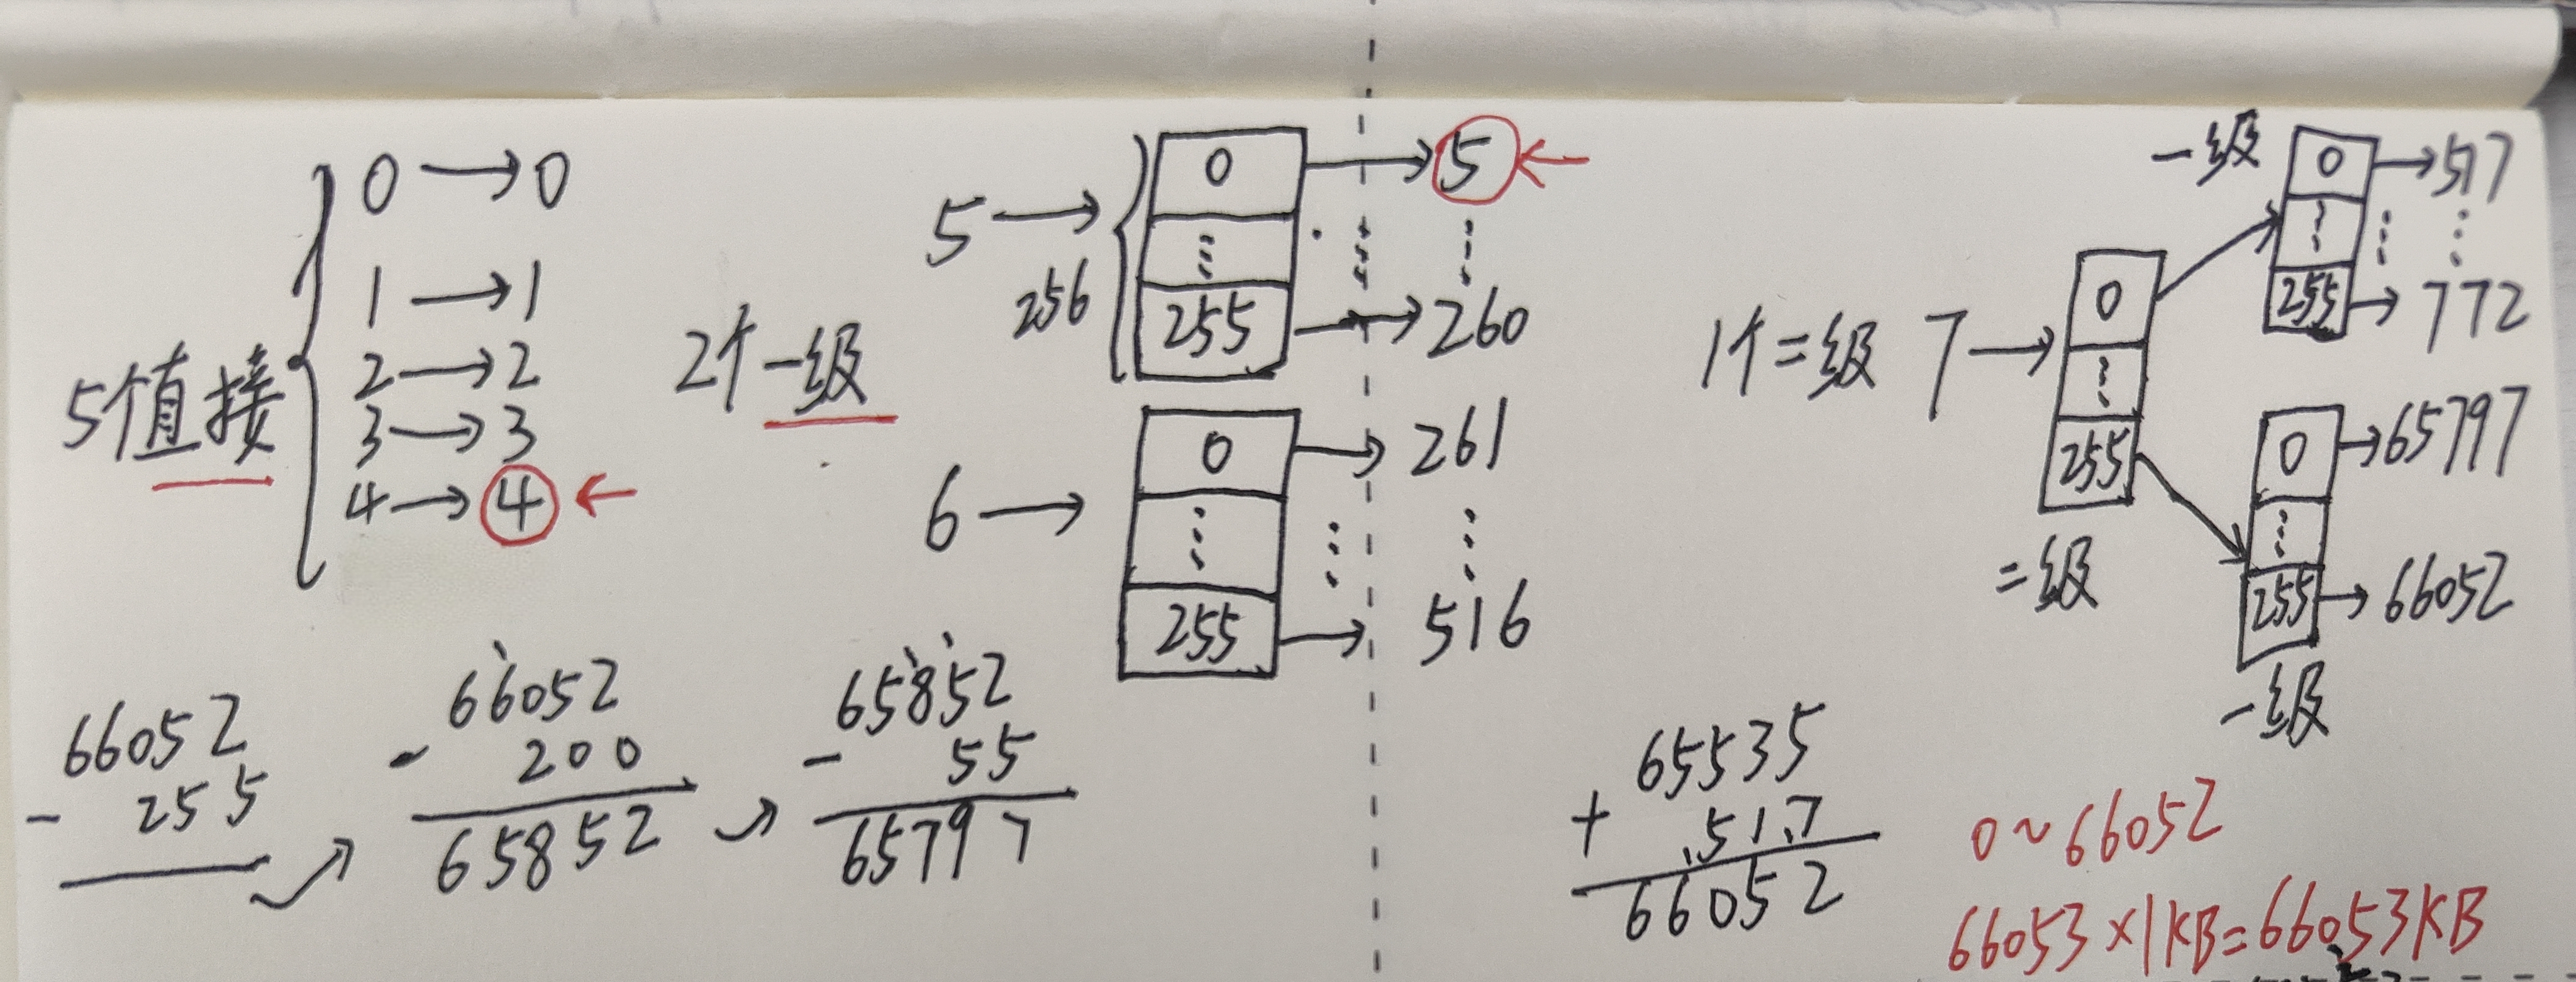 5个直接
0 → 0
1 → 1
2 → 2
3 → 3
4 → 4 ←
2个一级
5 →
256
0 → 5 ←
⋮ ⋮ ⋮
255 → 260
6 →
0 → 261
⋮ ⋮ ⋮
255 → 516
1个二级 7 →
0
⋮
255
二级
一级
0 → 517
⋮ ⋮ ⋮
255 → 772
0 → 65797
⋮
255 → 66052
一级
66052
- 255
66052
- 200
65852
65852
- 55
65797
65535
+ 517
66052
0~66052
66053×1KB=66053KB